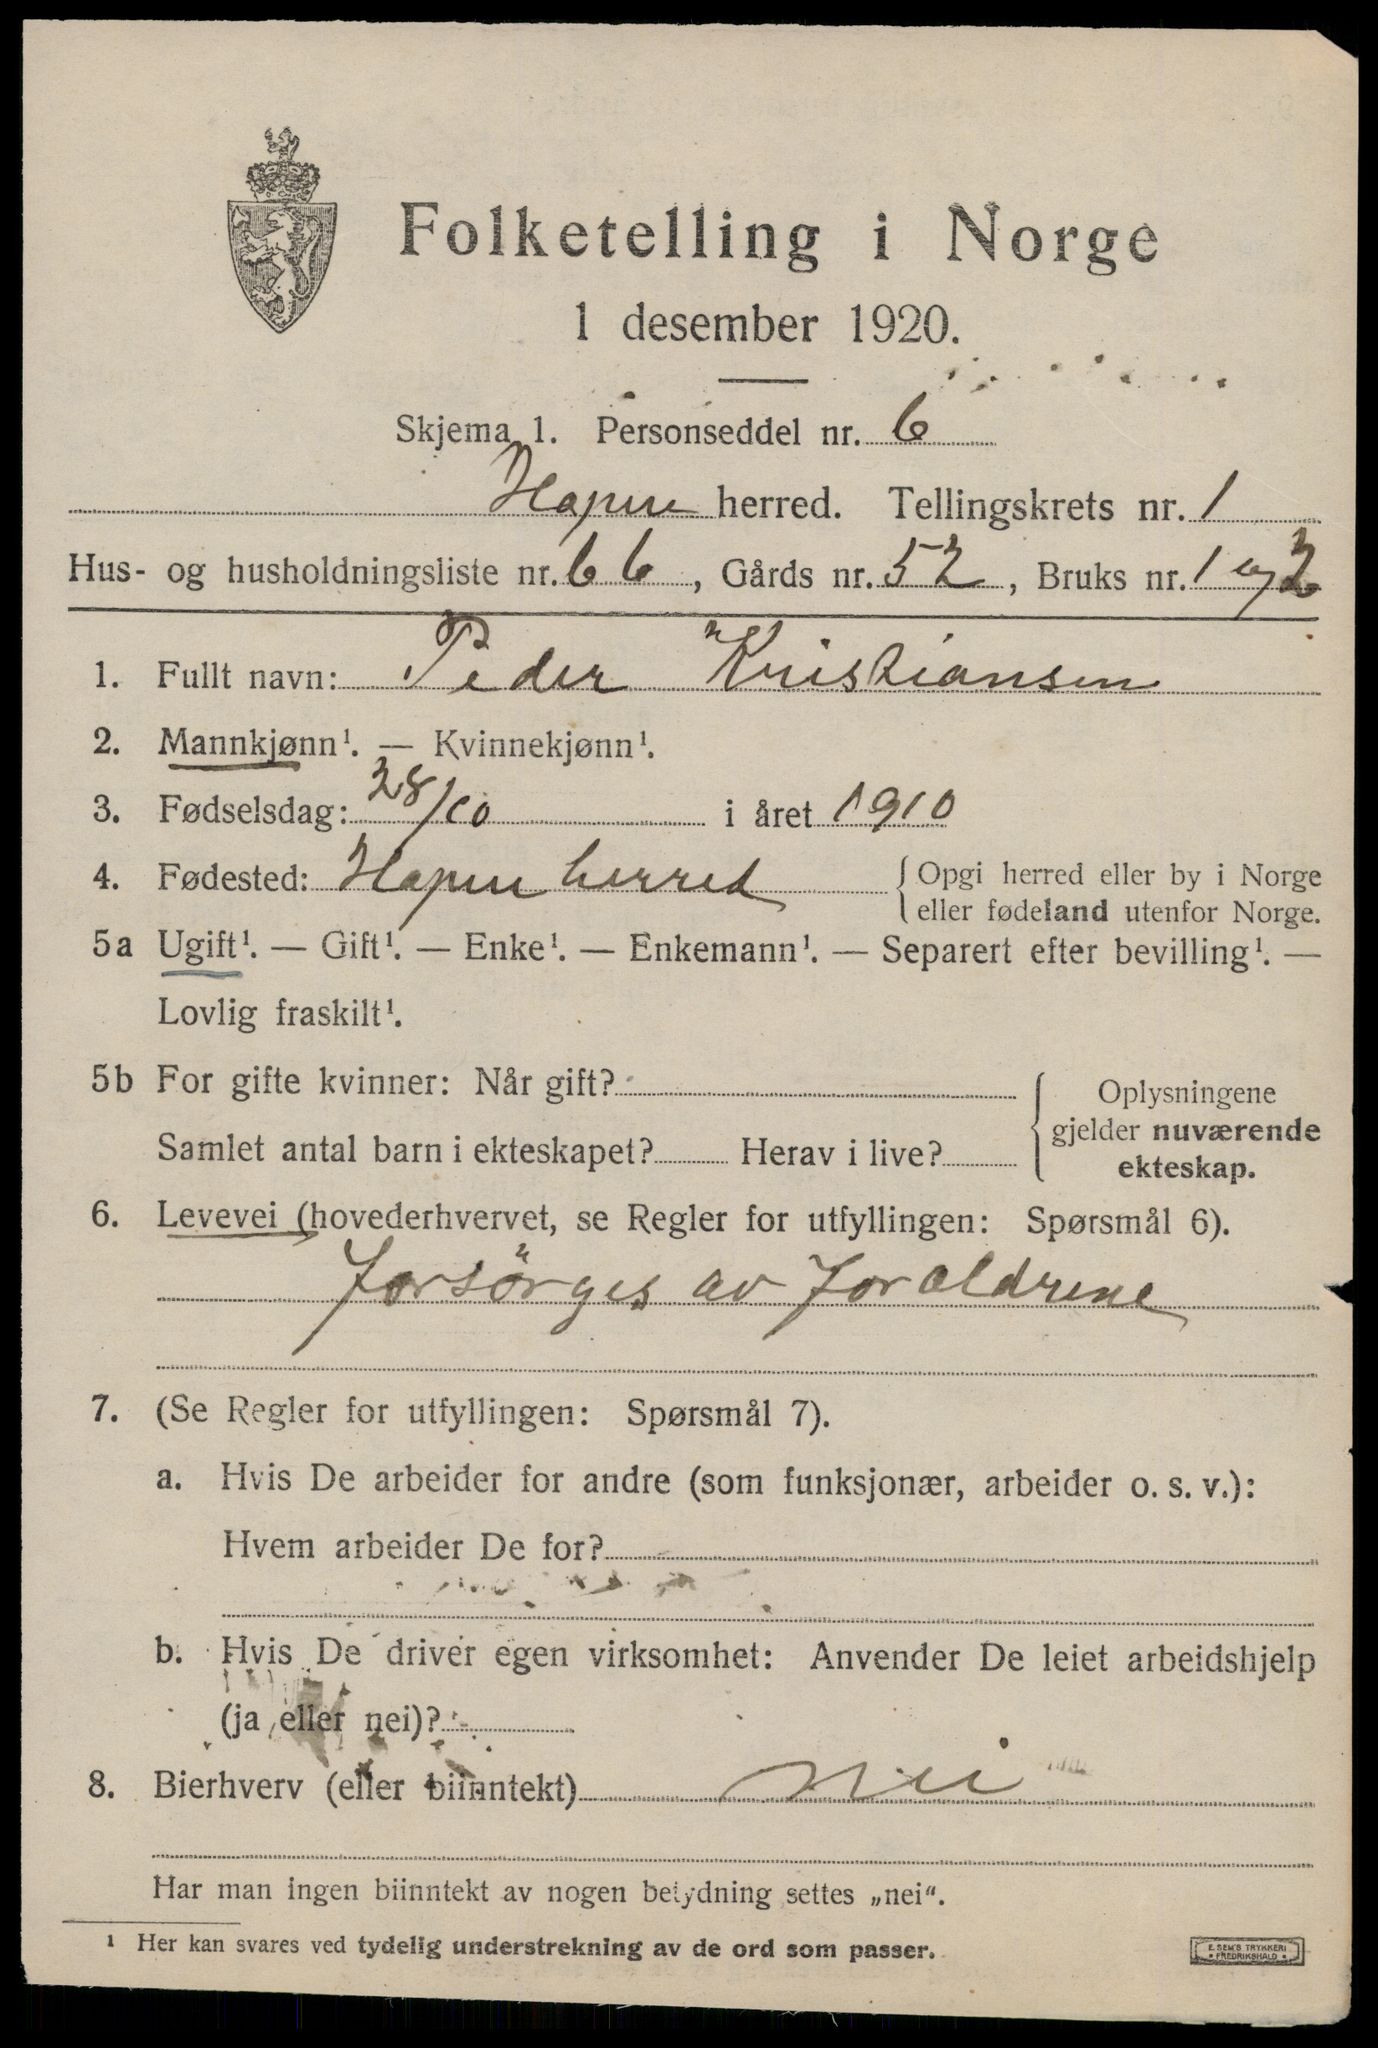 Folketelling i Norge
1 desember 1920.
Skjema 1. Personseddel nr. 6
Hapen herred. Tellingskrets nr. 1
Hus- og husholdningsliste nr. 66, Gårds nr. 52, Bruks nr. 1 og 2
1. Fullt navn: Peder Kristiansen
2. Mannkjønn¹. — Kvinnekjønn¹.
3. Fødselsdag: 28/10 i året 1910
4. Fødested: Hapen herred { Opgi herred eller by i Norge
eller fødeland utenfor Norge.
5a Ugift¹. — Gift¹. — Enke¹. — Enkemann¹. — Separert efter bevilling¹. —
Lovlig fraskilt¹.
5b For gifte kvinner: Når gift?
Samlet antal barn i ekteskapet? Herav i live?
Oplysningene
gjelder nuværende
ekteskap.
6. Levevei (hovederhvervet, se Regler for utfyllingen: Spørsmål 6).
Forsörges av Foraldrene
7. (Se Regler for utfyllingen: Spørsmål 7).
a. Hvis De arbeider for andre (som funksjonær, arbeider o. s. v.):
Hvem arbeider De for?
b. Hvis De driver egen virksomhet: Anvender De leiet arbeidshjelp
(ja eller nei)?
8. Bierhverv (eller biinntekt) nei
Har man ingen biinntekt av nogen betydning settes „nei“.
¹ Her kan svares ved tydelig understrekning av de ord som passer.
E. SEM'S TRYKKERI
FREDRIKSHALD